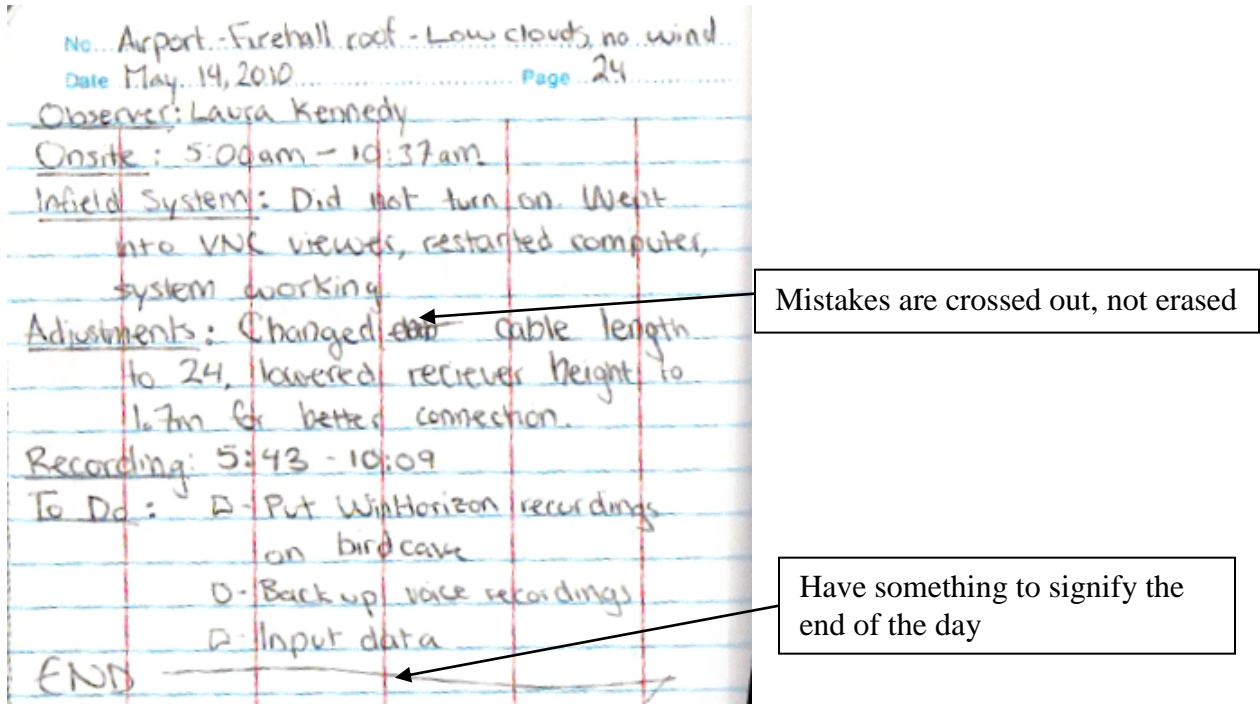 No. Airport - Firehall roof - Low clouds, no wind
Date May. 14, 2010 Page 24
Observer: Laura Kennedy
Onsite: 5:00am - 10:37am
Infield System: Did not turn on. Went
into VNC viewer, restarted computer,
system working
Adjustments: Changed cable length
to 24, lowered reciever height to
1.7m for better connection.
Recording: 5:43 - 10:09
To Do: - Put WinHorizon recordings
on birdcave
- Back up voice recordings
- Input data
END
Mistakes are crossed out, not erased
Have something to signify the
end of the day